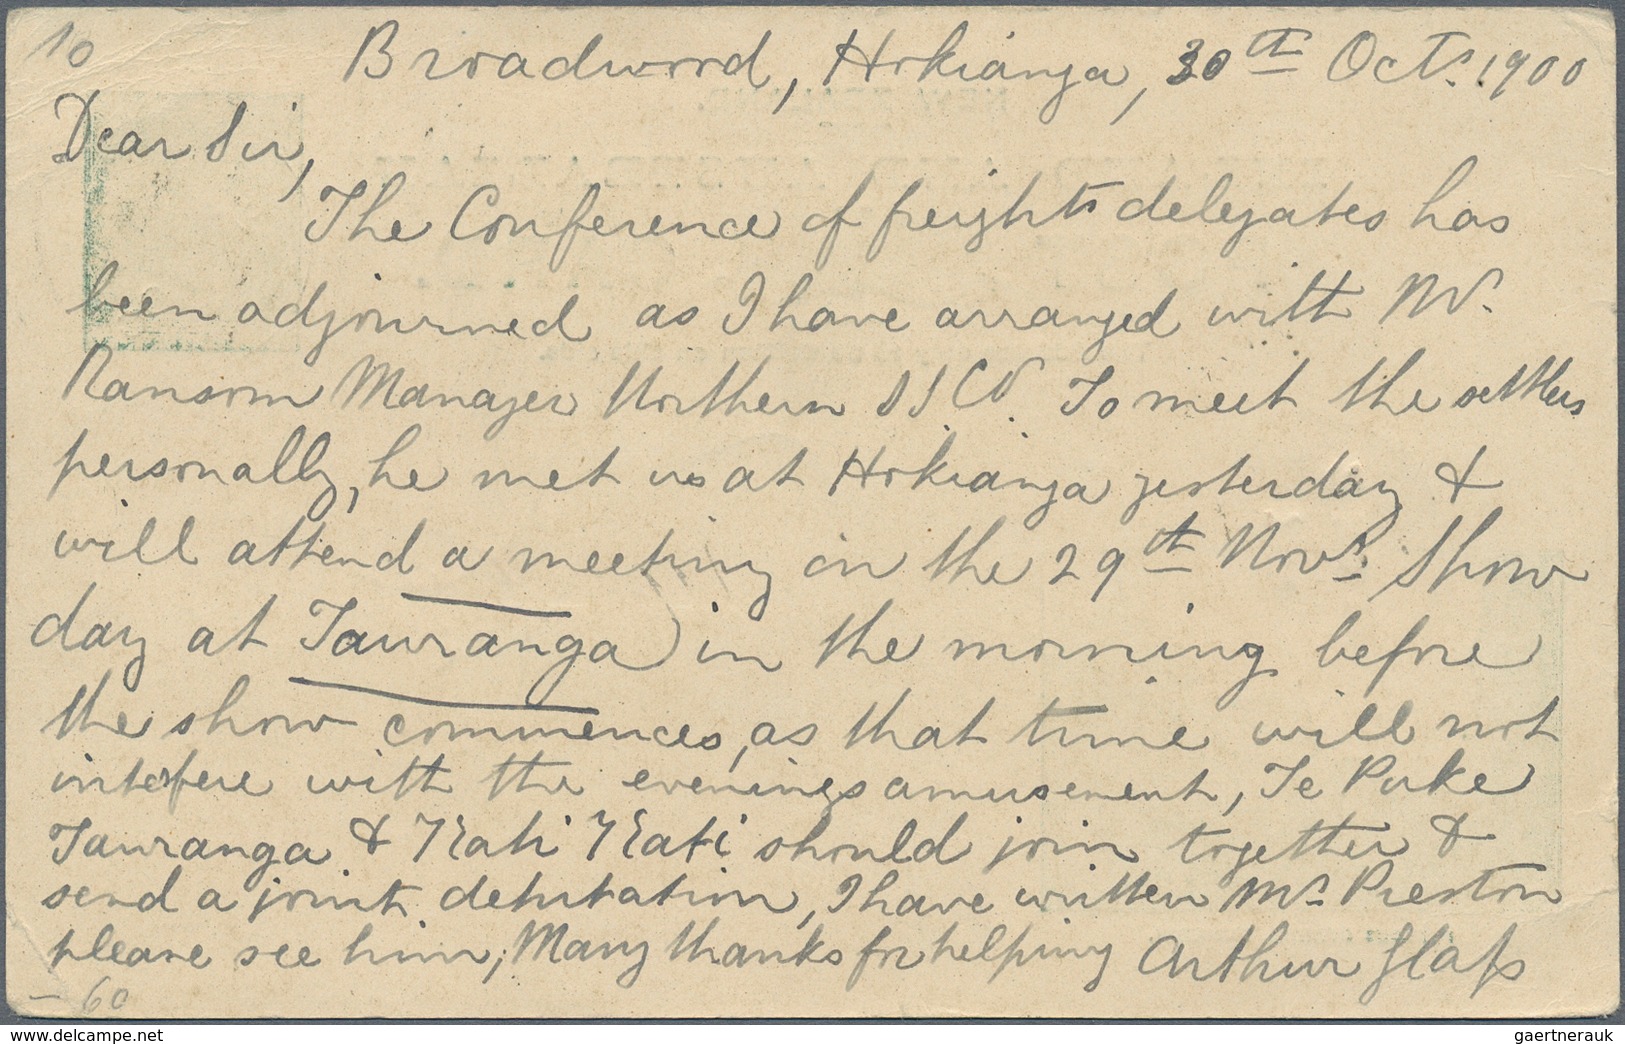 10
Broadwood, Hokianga, 30th Octr. 1900
Dear Sir,
The Conference of freights delegates has
been adjourned as I have arranged with Mr.
Ransom Manager Northern SSCo. To meet the settlers
personally, he met us at Hokianga yesterday &
will attend a meeting on the 29th Novr. Show
day at Tauranga in the morning before
the show commences, as that time will not
interfere with the evenings amusement, Te Puke
Tauranga & Kati Kati should join together &
send a joint deputation, I have written Mr. Preston
please see him, Many thanks for helping Arthur Glass
- 60
www.delcampe.net
gaertnerauk